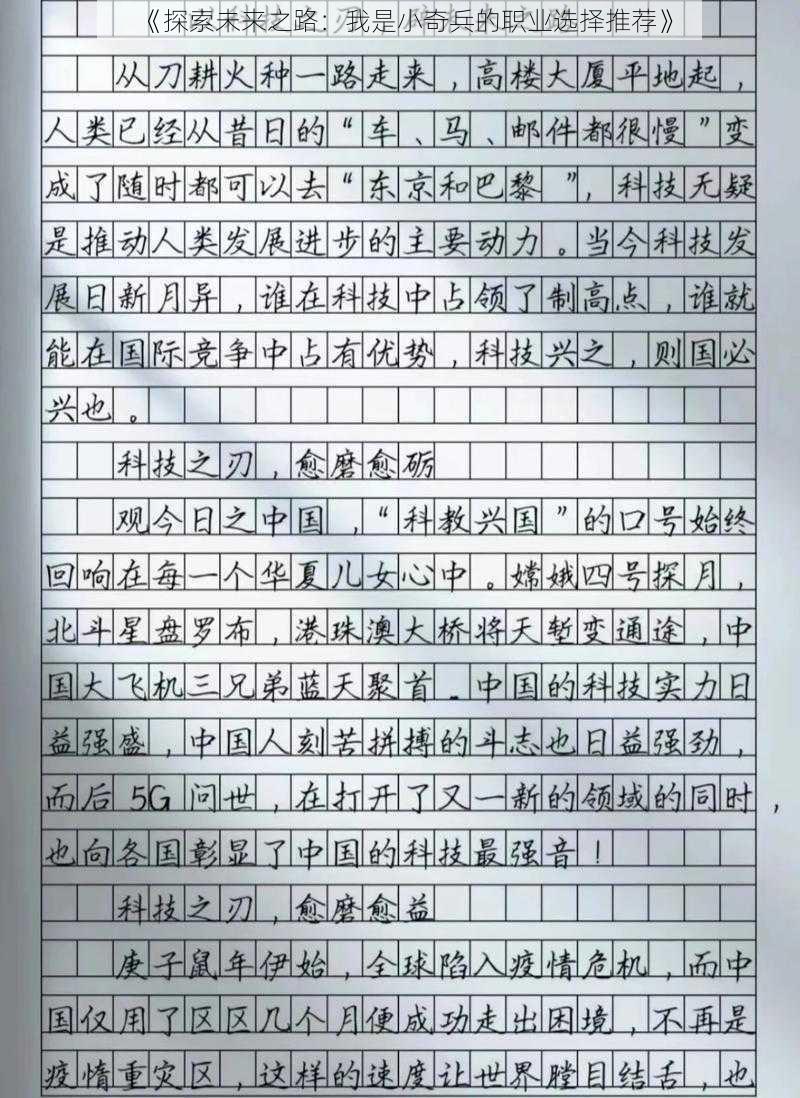 《探索未来之路：我是小奇兵的职业选择推荐》
从刀耕火种一路走来，高楼大厦平地起，
人类已经从昔日的“车、马、邮件都很慢”变
成了随时都可以去“东京和巴黎”，科技无疑
是推动人类发展进步的主要动力。当今科技发
展日新月异，谁在科技中占领了制高点，谁就
能在国际竞争中占有优势，科技兴之，则国必
兴也。
科技之刃，愈磨愈砺
观今日之中国，“科教兴国”的口号始终
回响在每一个华夏儿女心中。嫦娥四号探月，
北斗星盘罗布，港珠澳大桥将天堑变通途，中
国大飞机三兄弟蓝天聚首。中国的科技实力日
益强盛，中国人刻苦拼搏的斗志也日益强劲，
而后5G问世，在打开了又一新的领域的同时，
也向各国彰显了中国的科技最强音！
科技之刃，愈磨愈益
庚子鼠年伊始，全球陷入疫情危机，而中
国仅用了区区几个月便成功走出困境，不再是
疫情重灾区，这样的速度让世界瞠目结舌，也